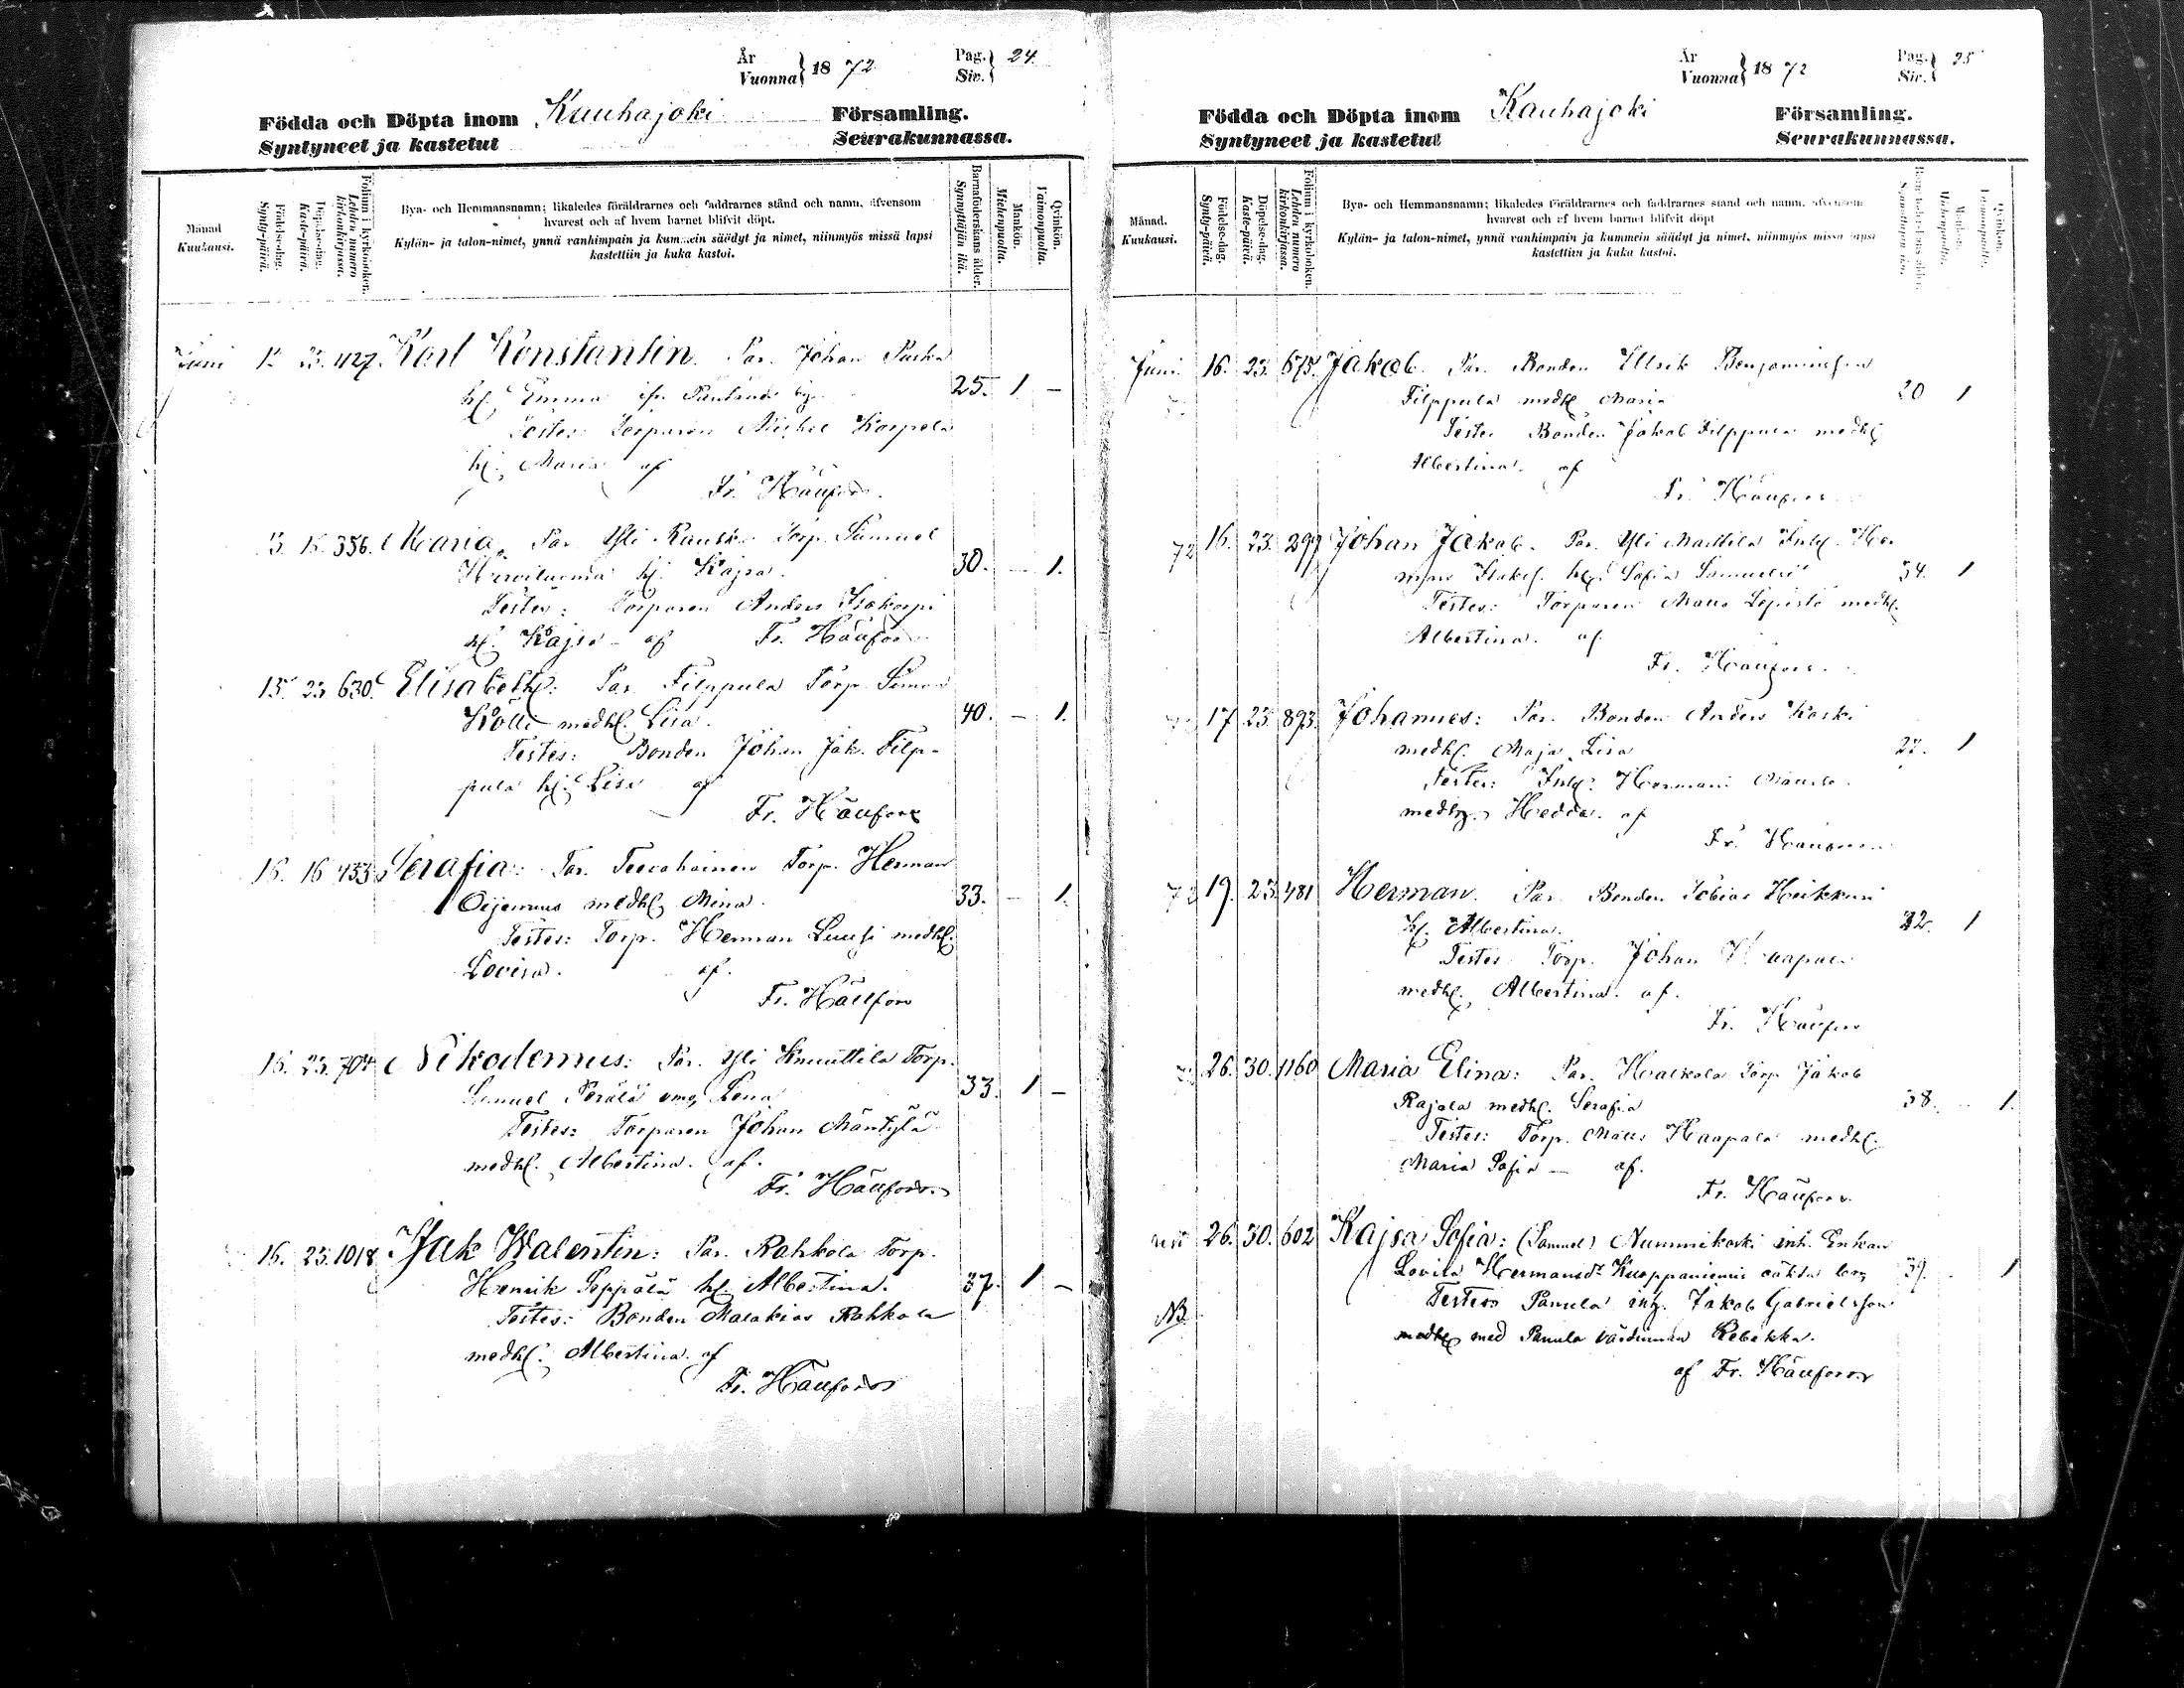 År
Vuonna } 18 72.
Pag.
Siv. } 24.
Födda och Döpta inom Kauhajoki Församling.
Syntyneet ja kastetut Seurakunnassa.
Månad
Kuukausi.
Födelse-dag.
Synty-päivä.
Döpelse-dag.
Kaste-päivä.
Folium i kyrkoboken.
Lehden numero kirkonkirjassa.
Bya- och Hemmansnamn; likaledes föräldrarnes och faddrarnes stånd och namn, äfvensom
hvarest och af hvem barnet blifvit döpt.
Kylän- ja talon-nimet, ynnä vanhimpain ja kummein säädyt ja nimet, niinmyös missä lapsi
kastettiin ja kuka kastoi.
Barnaföderskans ålder.
Synnyttäjän ikä.
Mankön.
Miehenpuolia.
Qvinkön.
Vaimonpuolia.
Juni 23. 427. Karl Konstantin. Par. Johan
hf. Emma 25. 1 –
Testes: Torparen Michel Korpela
hf. Maria af
Fr. Häufors.
15. 356. Maria. Par. Yli Torp. Samuel
hf. Kajsa. 30. – 1.
Testes: Torparen Anders
hf. Kajsa – af Fr. Häufors
15. 23 630. Elisabeth: Par. Filppula Torp. Simon
Kölli medhf. Lisa. 40. – 1.
Testes: Bonden Johan Jak. Filp-
pula hf. Lisa af
Fr. Häufors
16. 16 433 Serafia: Par. Torp. Herman
medhf. Mina. 33. – 1.
Testes: Torp. Herman Luusi medhf.
Lovisa. af.
Fr. Häufors
16. 23. 704. Nikodemus: Par. Yli Knuuttila Torp.
Samuel Perälä Lena 33. 1 –
Testes: Torparen Johan Mäntylä
medhf. Albertina. af.
Fr. Häufors.
16. 23. 1018 Isak Walentin: Par. Rahkola Torp.
Henrik Seppälä hf. Albertina. 37. 1 –
Testes: Bonden Malakias Rahkola
medhf. Albertina. af
Fr. Häufors
År
Vuonna } 18 72
Pag.
Siv. } 25
Födda och Döpta inom Kauhajoki Församling.
Syntyneet ja kastetut Seurakunnassa.
Månad.
Kuukausi.
Födelse-dag.
Synty-päivä.
Döpelse-dag.
Kaste-päivä.
Folium i kyrkoboken.
Lehden numero kirkonkirjassa.
Bya- och Hemmansnamn; likaledes föräldrarnes och faddrarnes stånd och namn, äfvensom
hvarest och af hvem barnet blifvit döpt
Kylän- ja talon-nimet, ynnä vanhimpain ja kummein säädyt ja nimet, niinmyös missä lapsi
kastettiin ja kuka kastoi.
Juni 16. 23. 675. Jakob. Par. Bonden Ulrik Benjaminsson
Filppula medhf. Maria 20 1
Testes Bonden Jakob Filppula medhf.
Albertina. af
Fr. Häufors
72 16. 23. 297 Johan Jakob. Par. Yli Marttila Inh. Her-
man hf. Sofia 34. 1
Testes: Torparen Matts Lepistö medhf.
Albertina. af.
Fr. Häufors.
17 23 893 Johannes: Par. Bonden Anders Koski
medhf. Maja Lisa 27. 1
Testes: Inh. Herman
medhf. Hedda. af
Fr. Häufors
72 19. 23. 481 Herman. Par. Bonden Tobias Heikkuri
hf. Albertina. 32. 1
Testes Torp. Johan Haapala
medhf. Albertina. af.
Fr. Häufors
26. 30. 1160 Maria Elina: Par. Torp. Jakob
Rajala medhf. Serafia 38. 1.
Testes: Torp. Matts Haapala medhf.
Maria Sofia – af.
Fr. Häufors.
26. 30. 602 Kajsa Sofia: (Samuel) Nummikoski inh. Enkan
Lovisa Hermansdr Kuoppaniemis oäkta barn 39. 1
Testes Panula inh. Jakob Gabrielsson
NB.
medhf med Panula värdinnan Rebekka.
af Fr. Häufors